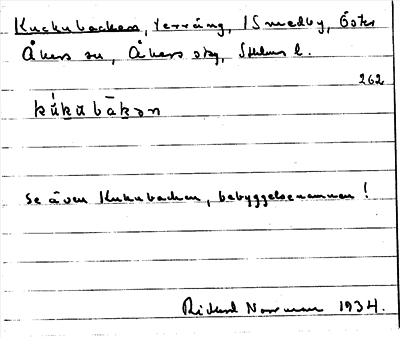 Kuckubacken, terräng, i Smedby, Öster
Åkers sn, Åkers skg, Sthlms l.
262
kúku̇bàkən
Se även Kuckubacken, bebyggelsenamnen!
Rickard 1934.